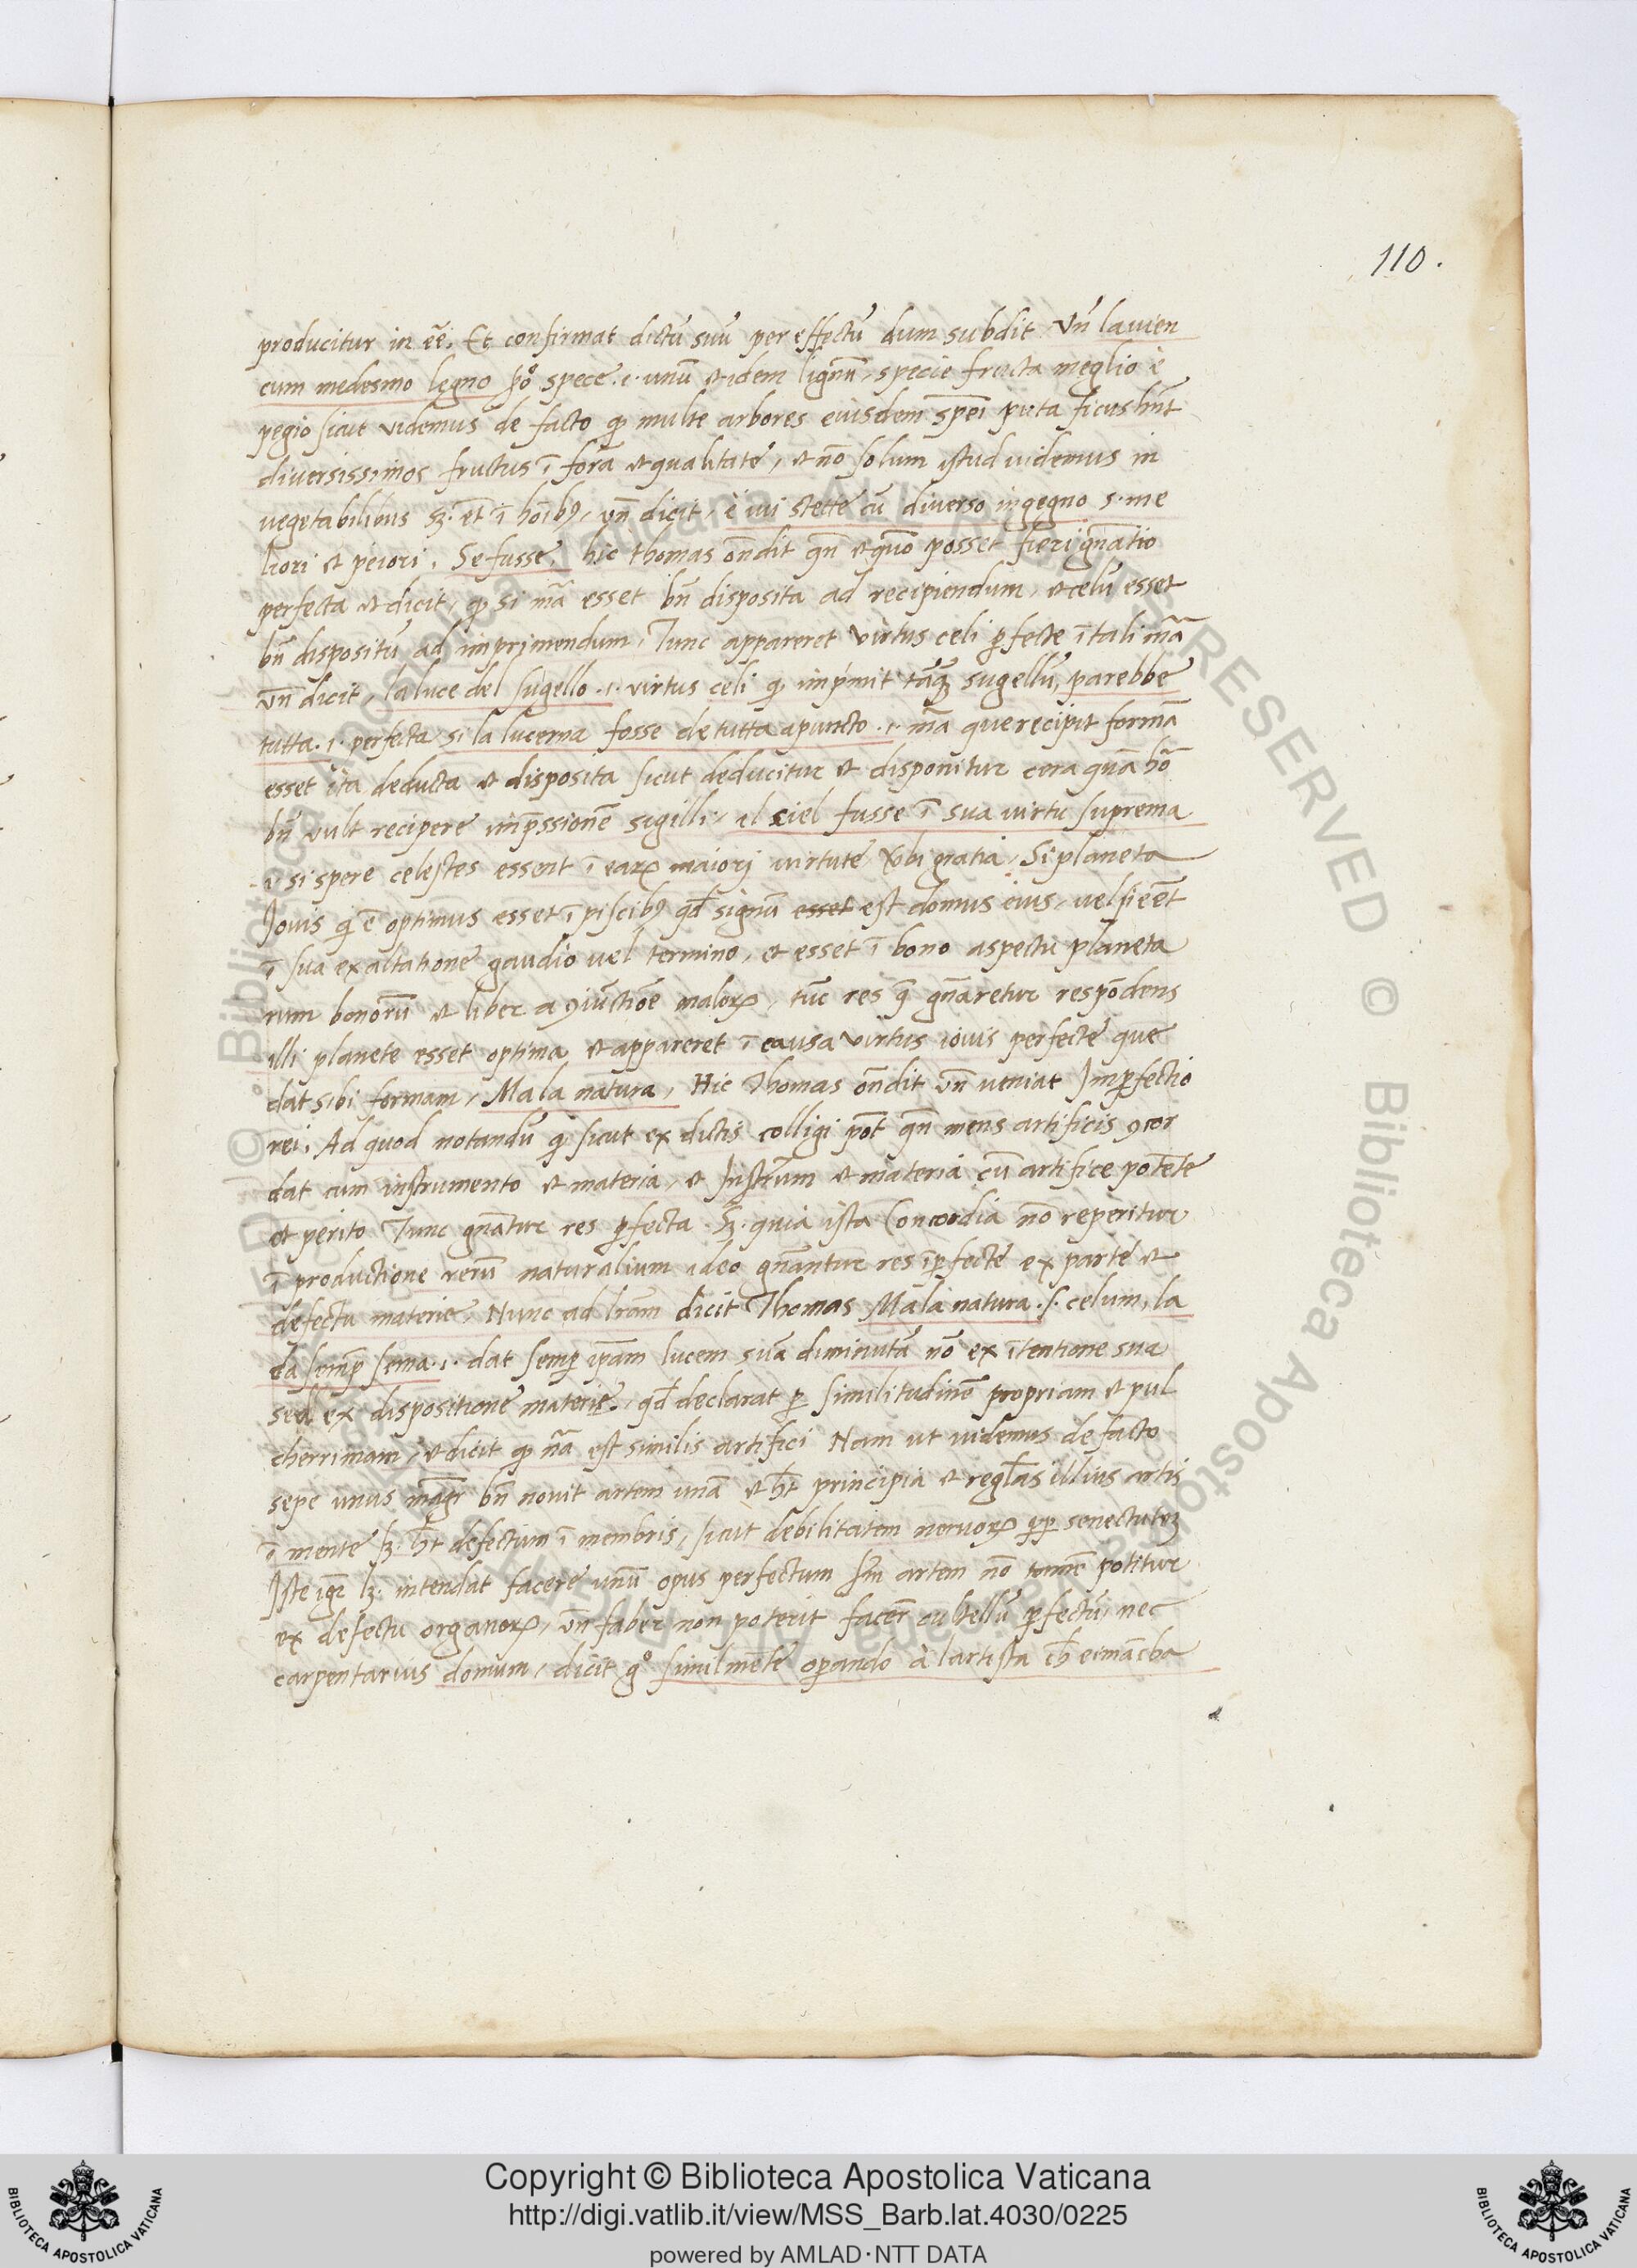 110.
producitur in eē. Et confirmat dictū suū per effectū dum subdit Vn̄ lauien
cum medesmo legno pº spece .i. unū et idem lignū, specie fructa meglio è
pegio sicut videmus de facto qͥ multe arbores eiusdem spēi puta ficus hn̄t
diversissimos fructus ī forā et qualitatē, et nō solum istud videmus in
vegetabilibus sꝫ. et ī hōibꝰ, vn̄ dicit, è vui stette cū diverso ingegno s. me
liori et peiori. Se fusse, hic thomas ondit qn̄ et quō posset fieri gnatio
perfecta et dicit, qͥ si mā esset bn̄ disposita ad recipiendum, et celū esset
bn̄ dispositū ad imprimendum, Tunc appareret virtus celi ꝑfecte ī tali mā
Vn̄ dicit, la luce del sugello .i. virtus celi qͥ imp̄mit tāqꝫ sugellū, parebbe
tutta .i. perfecta si la lucerna fosse de tutta apuncto .i. mā que recipit formā
esset ita deducta et disposita sicut deducitur et disponitur cera quā hō
bn̄ vult recipere imp̄ssionē sigilli, el ciel fusse ī sua virtu suprema
.i. si spere celestes essent ī earꝝ maiori virtute ꝟbi gratia, Si planeta
Jovis qͥ ē optimus esset ī piscibꝰ qđ signū esset est domus eius, vel si eēt
ī sua exaltatione gaudio vel termino, et esset ī bono aspectu planeta
rum bonorū et liber a ꝯiūctiōe malorꝝ, tūc res q̄ gn̄aretur respōdens
illi planete esset optima et appareret ī causa virtus iovis perfecte que
dat sibi formam, Ma la natura, Hic Thomas ondit Vn̄ veniat Imꝑfectio
rei. Ad quod notandū qͥ sicut ex dictis colligi pōt qn̄ mens artificis ꝯcor
dat cum instrumento et materia, et Instrm̄ et materia cū artifice potēte
et perito Tunc gn̄atur res ꝑfecta. Sꝫ. quia ista Concordia nō reperitur
ī productione rerū naturalium ideo gn̄antur res īꝑfecte ex parte et
defectu materie, Nunc ad lrām dicit Thomas Ma la natura .s. celum, la
da semp̄ sema .i. dat semꝑ ipam lucem suā diminutā nō ex ītentione sua
sed ex dispositione materie. qđ declarat ꝑ similitudinē propriam et pul
cherrimam, et dicit qͥ nā est similis artifici Nam ut videmus de facto
sepe unus mägr bn̄ novit artem unā et ht̄ principia et regłas illius artis
ī mente sꝫ. ht̄ defectum ī membris, sicut debilitatem nervorꝝ ꝓpꝑ senectutēꝫ
Iste igr̄ lꝫ. intendat facere unū opus perfectum sm̄ artem nō tamē potitur
ex defectu organorꝝ, Vn̄ faber non poterit facer̄ cultellū ꝑfectū, nec
carpentarius domum, dicit gº similmēte oꝑando à lartista cħ ei mācha
Copyright © Biblioteca Apostolica Vaticana
http://digi.vatlib.it/view/MSS_Barb.lat.4030/0225
powered by AMLAD·NTT DATA
BIBLIOTECA APOSTOLICA VATICANA
BIBLIOTECA APOSTOLICA VATICANA